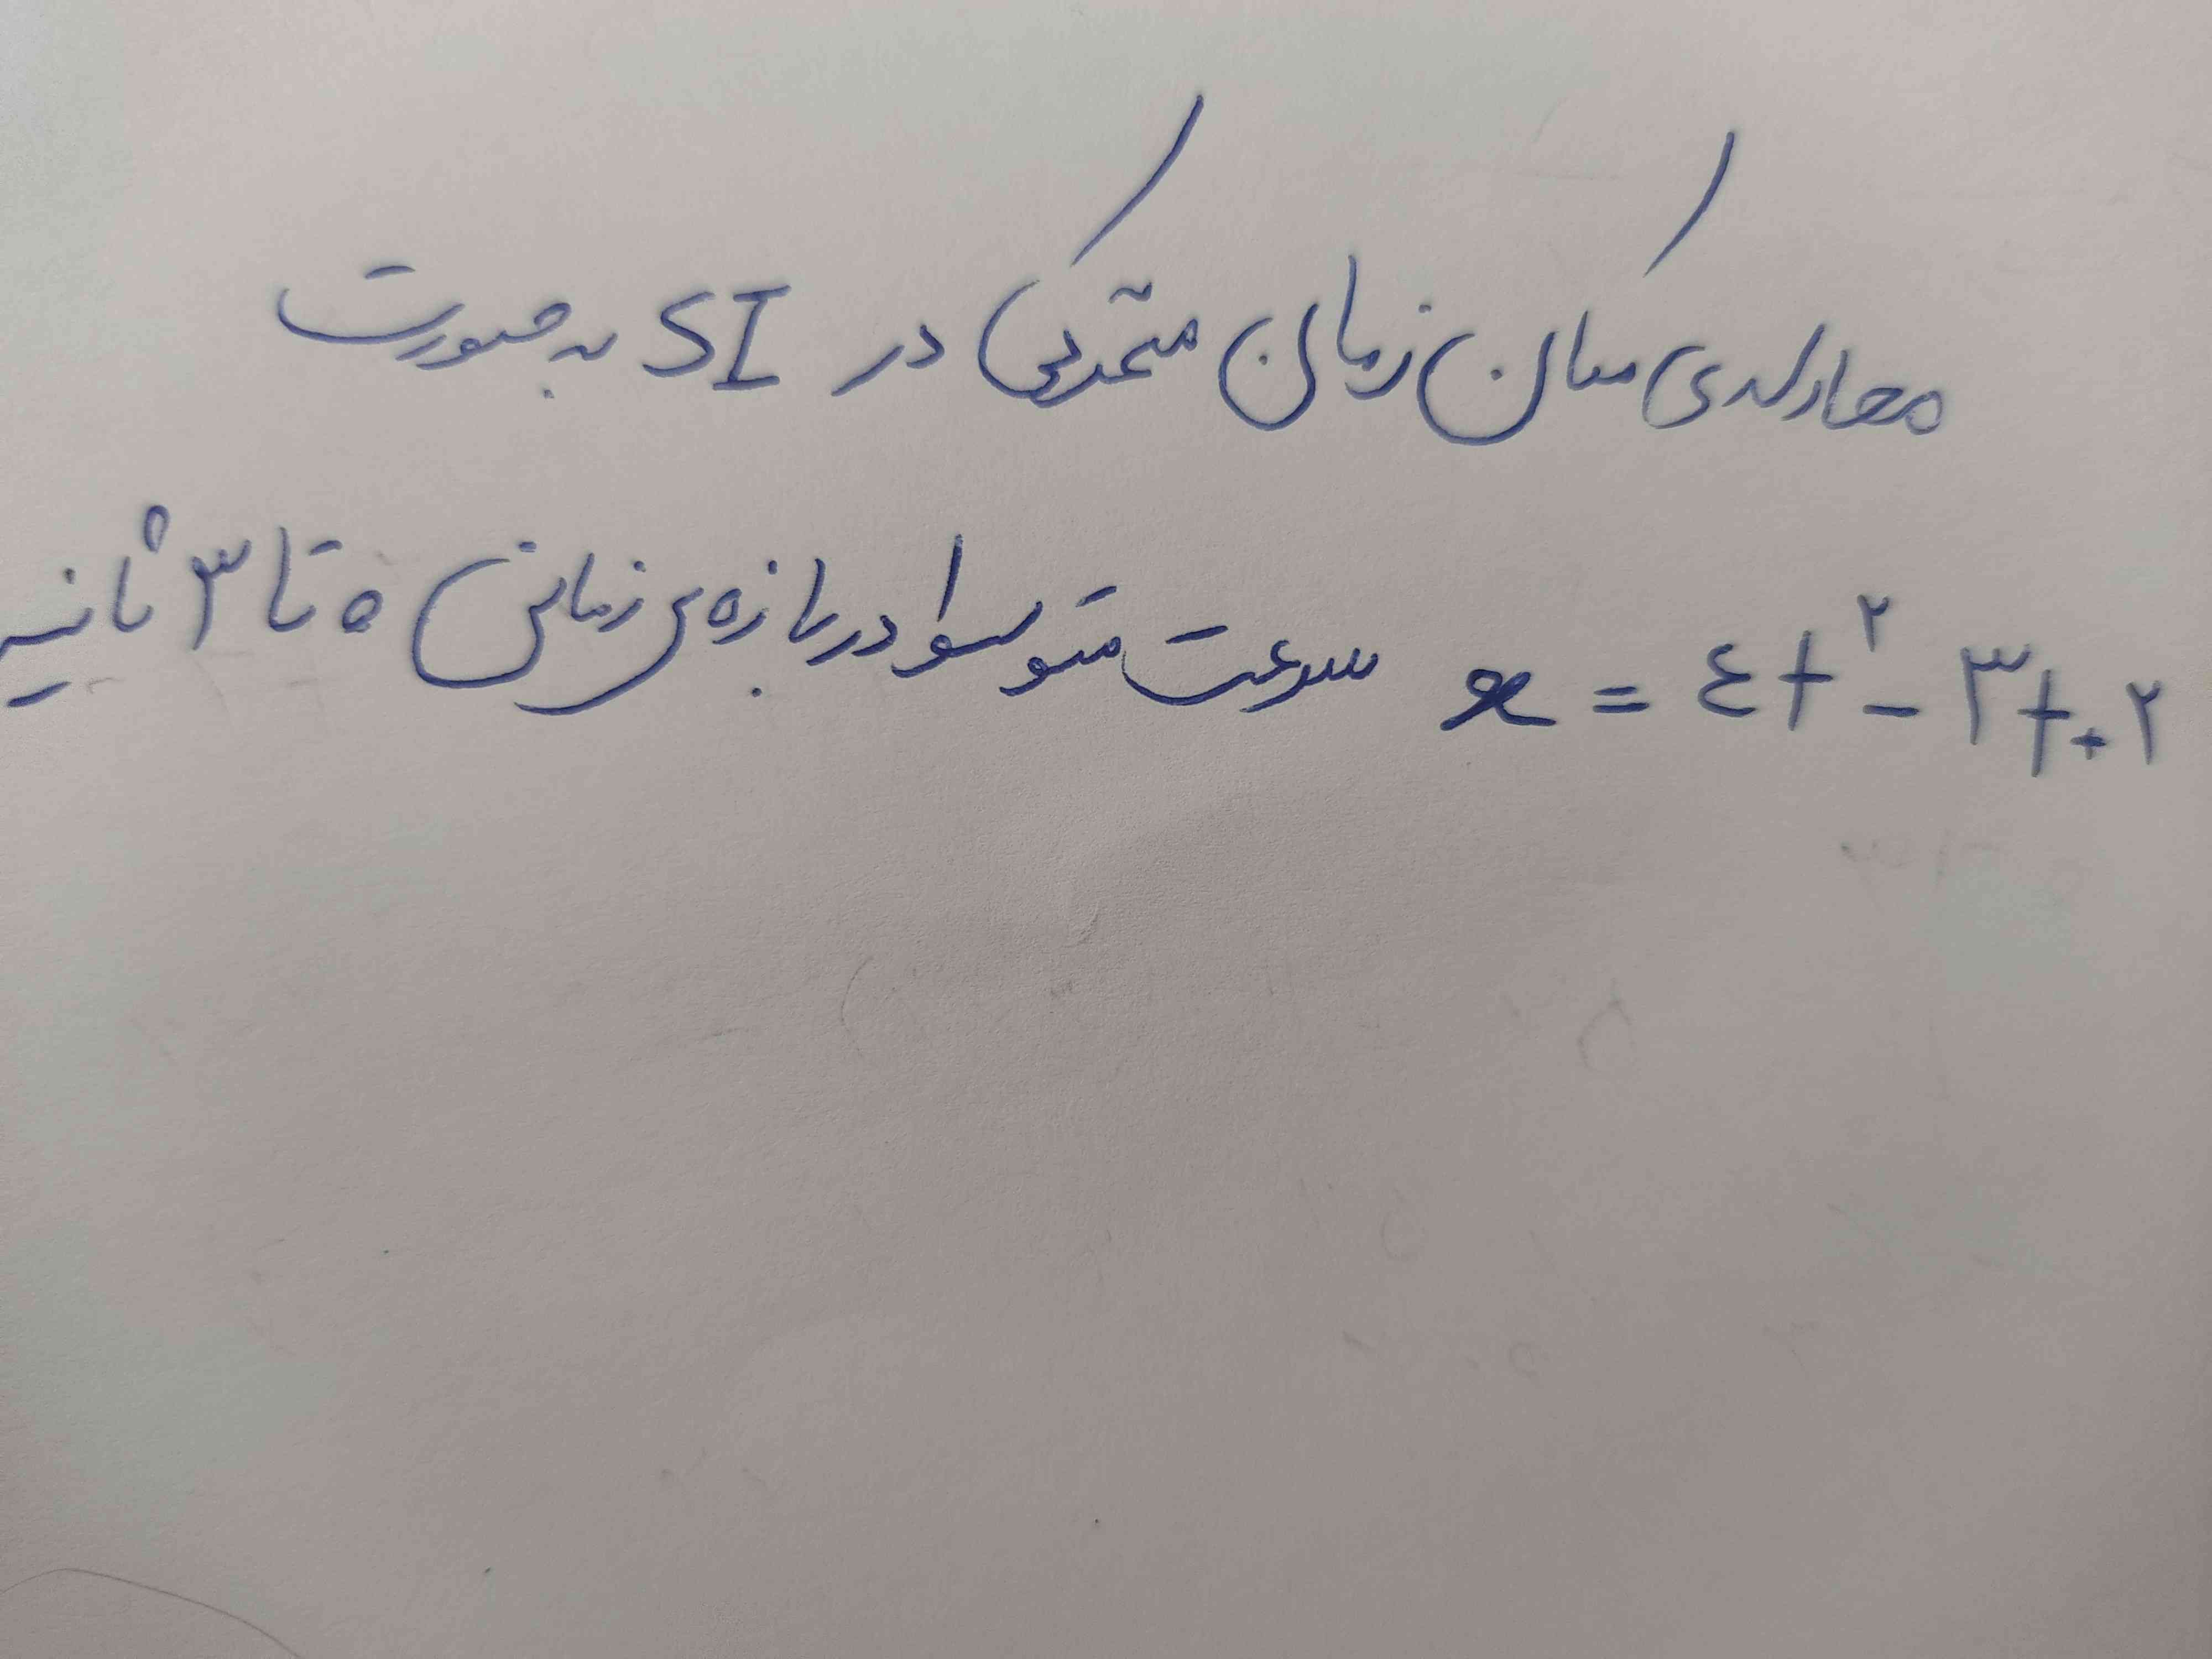 معادله‌ی مکان زمان متحرکی در SI به صورت
x = ۴t^۲ - ۳t + ۲ سرعت متوسط در بازه‌ی زمانی ۰ تا ۳ ثانیه